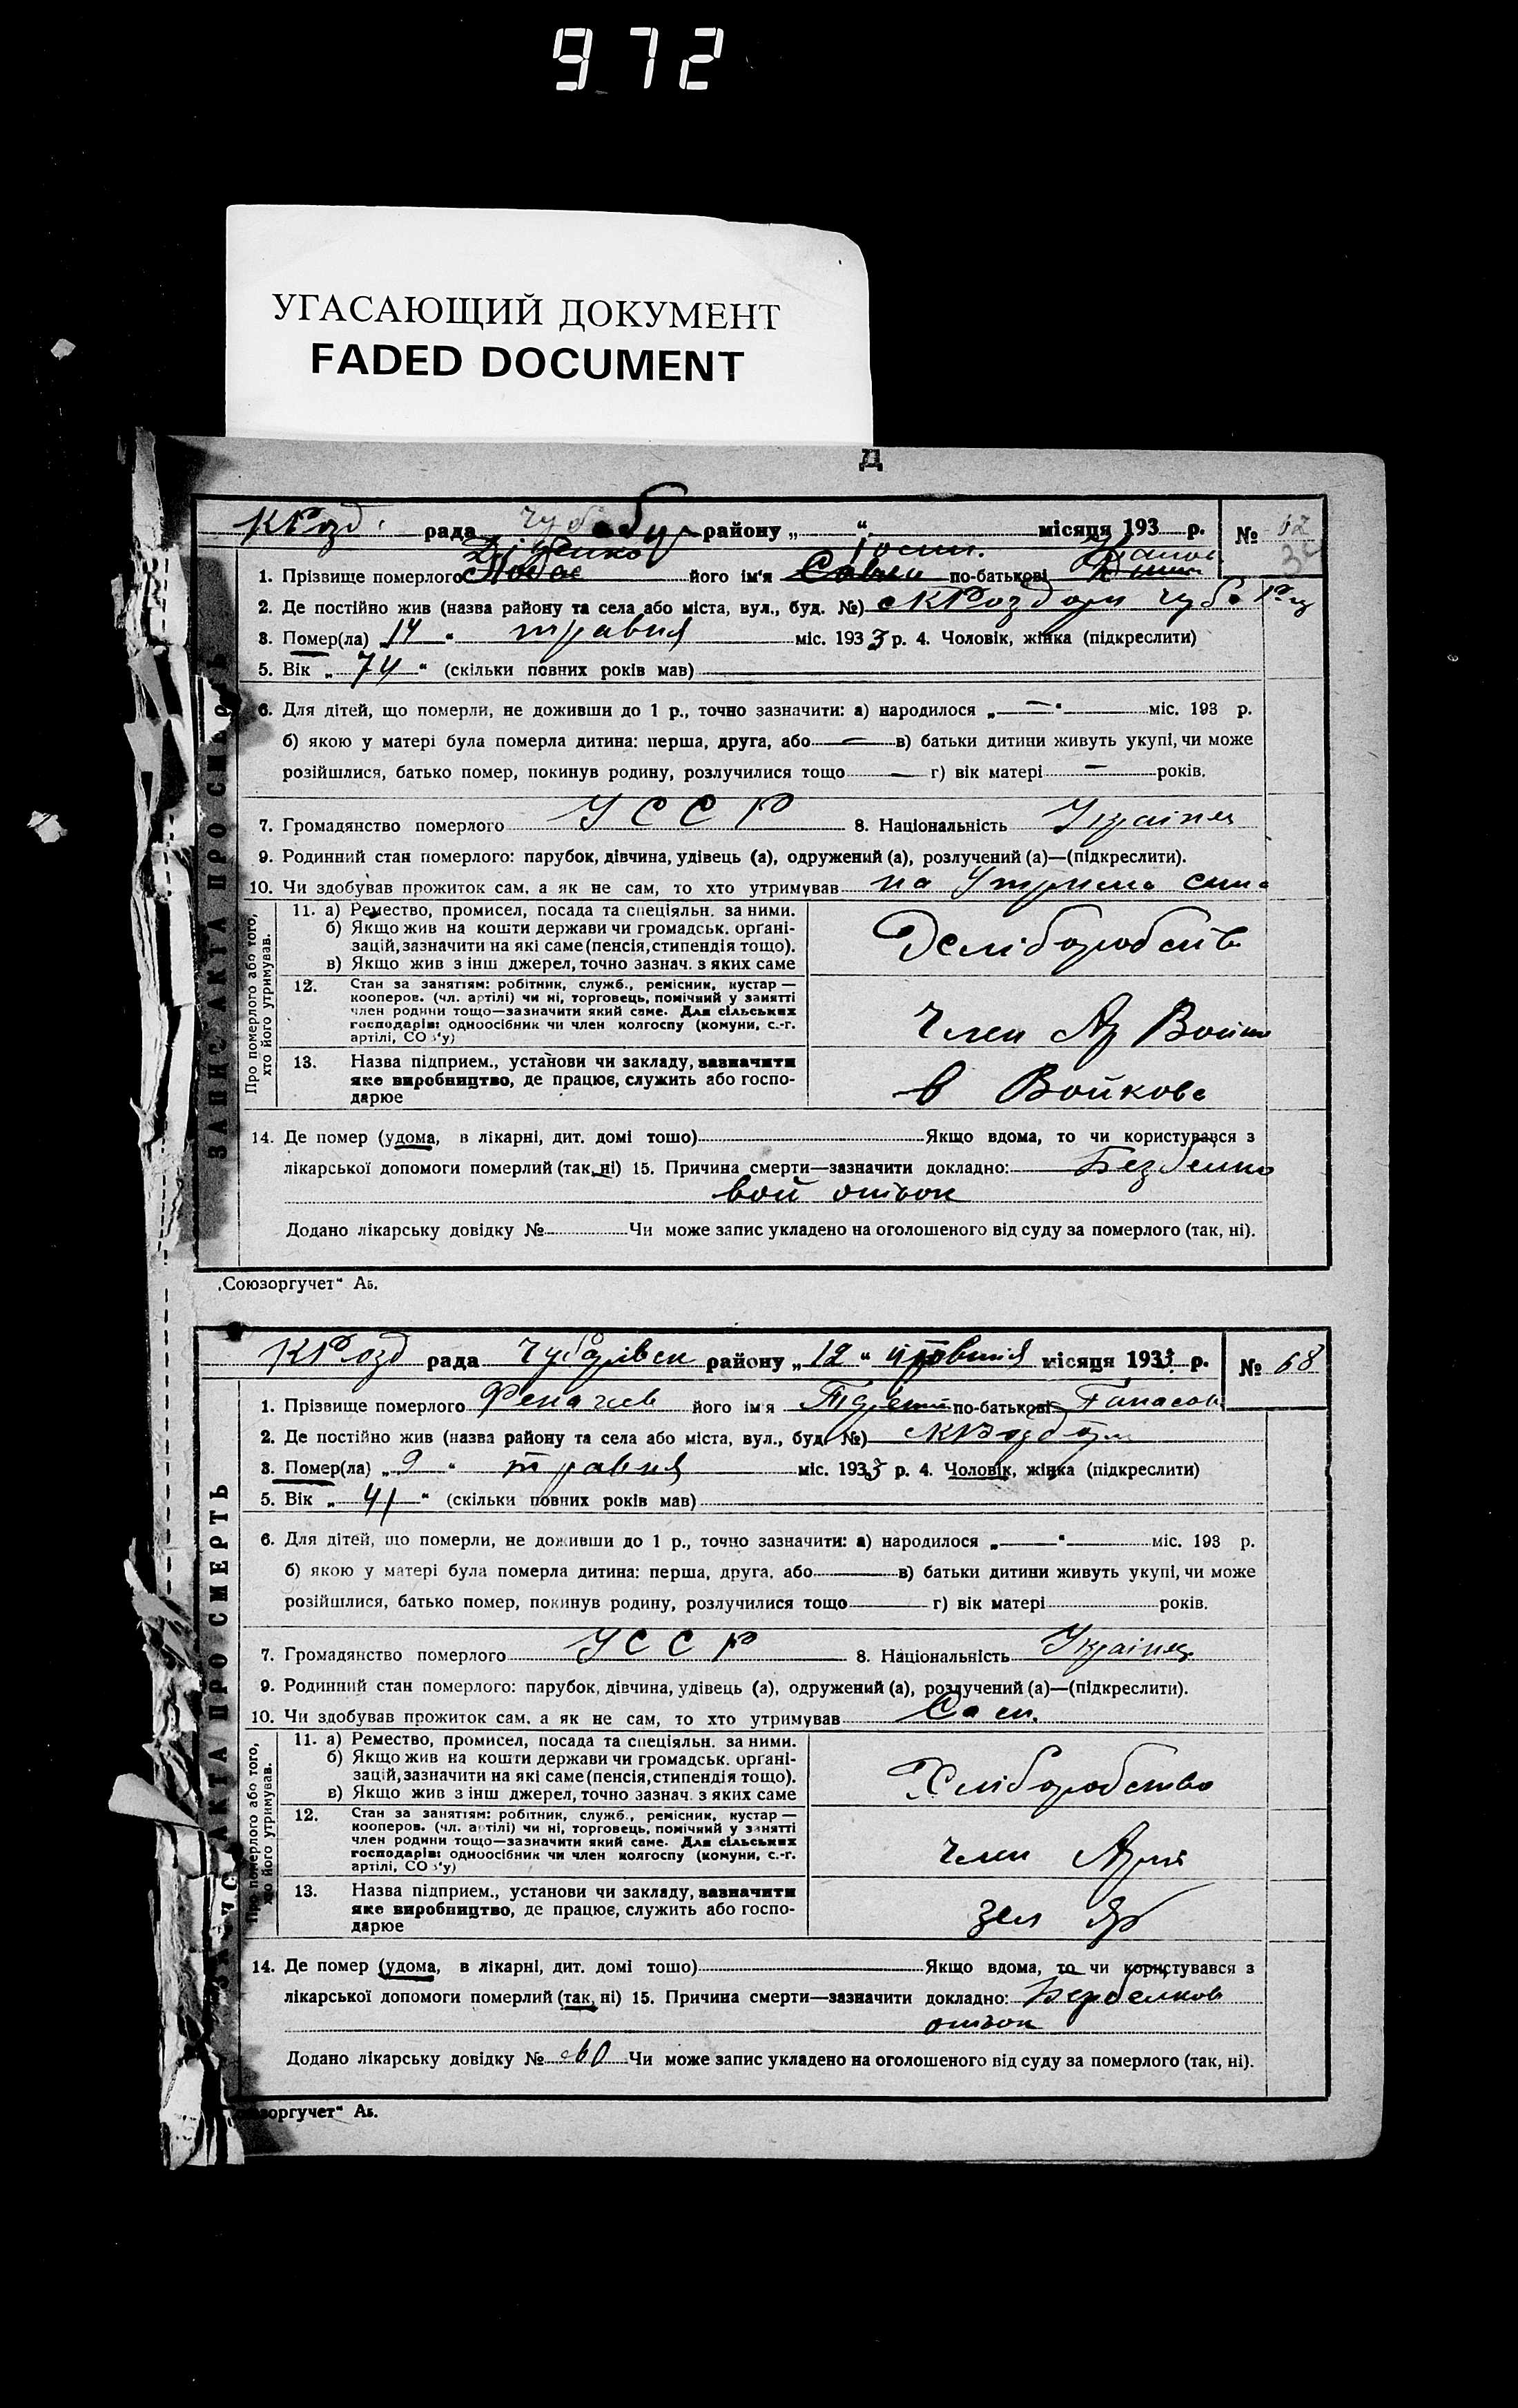 972
УГАСАЮЩИЙ ДОКУМЕНТ
FADED DOCUMENT
Д
КРозд. рада Чуб району „ “ місяця 193 р. №
1. Прізвище померлого Діденко його ім'я по-батькові
2. Де постійно жив (назва району та села або міста, вул., буд. №) с КРоздори Чуб.
3. Помер(ла) 14 “ травня міс. 1933 р. 4. Чоловік, жінка (підкреслити)
5. Вік „ 74 “ (скільки повних років мав)
6. Для дітей, що померли, не доживши до 1 р., точно зазначити: а) народилося „ — “ міс. 193 р.
б) якою у матері була померла дитина: перша, друга, або — в) батьки дитини живуть укупі, чи може
розійшлися, батько помер, покинув родину, розлучилися тощо — г) вік матері — років.
7. Громадянство померлого УССР 8. Національність Українец
9. Родинний стан померлого: парубок, дівчина, удівець (а), одружений (а), розлучений (а)—(підкреслити).
10. Чи здобував прожиток сам, а як не сам, то хто утримував на утримо сина
ЗАПИС АКТА ПРО СМЕРТЬ
Про померлого або того, хто його утримував.
11. а) Ремество, промисел, посада та спеціяльн. за ними.
б) Якщо жив на кошти держави чи громадськ. органі-
зацій, зазначити на які саме (пенсія, стипендія тощо).
в) Якщо жив з інш джерел, точно зазнач. з яких саме
Хліборобств
12. Стан за заняттям: робітник, служб., ремісник, кустар—
кооперов. (чл. артілі) чи ні, торговець, помічний у занятті
член родини тощо—зазначити який саме. Для сільських
господарів: одноосібник чи член колгоспу (комуни, с.-г.
артілі, СОЗ'у)
Член Ар Войк
13. Назва підприєм., установи чи закладу, зазначити
яке виробництво, де працює, служить або госпо-
дарює
в Войкова
14. Де помер (удома, в лікарні, дит. домі тощо) Якщо вдома, то чи користувався з
лікарської допомоги померлий (так, ні) 15. Причина смерти—зазначити докладно: Безбелко
вой отьок
Додано лікарську довідку № Чи може запис укладено на оголошеного від суду за померлого (так, ні).
„Союзоргучет“ А5.
КРозд рада Чубарівськ району „ 12 “ травня місяця 1933 р. № 68
1. Прізвище померлого його ім'я по-батькові Панасов
2. Де постійно жив (назва району та села або міста, вул., буд. №)
3. Помер(ла) „ 9 “ травня міс. 1933 р. 4. Чоловік, жінка (підкреслити)
5. Вік „ 41 “ (скільки повних років мав)
6. Для дітей, що померли, не доживши до 1 р., точно зазначити: а) народилося „ “ міс. 193 р.
б) якою у матері була померла дитина: перша, друга, або в) батьки дитини живуть укупі, чи може
розійшлися, батько помер, покинув родину, розлучилися тощо г) вік матері років.
7. Громадянство померлого УССР 8. Національність Українец
9. Родинний стан померлого: парубок, дівчина, удівець (а), одружений (а), розлучений (а)—(підкреслити).
10. Чи здобував прожиток сам, а як не сам, то хто утримував Сам.
ЗАПИС АКТА ПРО СМЕРТЬ
Про померлого або того, хто його утримував.
11. а) Ремество, промисел, посада та спеціяльн. за ними.
б) Якщо жив на кошти держави чи громадськ. органі-
зацій, зазначити на які саме (пенсія, стипендія тощо).
в) Якщо жив з інш джерел, точно зазнач. з яких саме
Хліборобство
12. Стан за заняттям: робітник, служб., ремісник, кустар—
кооперов. (чл. артілі) чи ні, торговець, помічний у занятті
член родини тощо—зазначити який саме. Для сільських
господарів: одноосібник чи член колгоспу (комуни, с.-г.
артілі, СОЗ'у)
член Арт
13. Назва підприєм., установи чи закладу, зазначити
яке виробництво, де працює, служить або госпо-
дарює
Зел Яр
14. Де помер (удома, в лікарні, дит. домі тощо) Якщо вдома, то чи користувався з
лікарської допомоги померлий (так, ні) 15. Причина смерти—зазначити докладно: Безбелков
отьок
Додано лікарську довідку № Чи може запис укладено на оголошеного від суду за померлого (так, ні).
зоргучет“ А5.